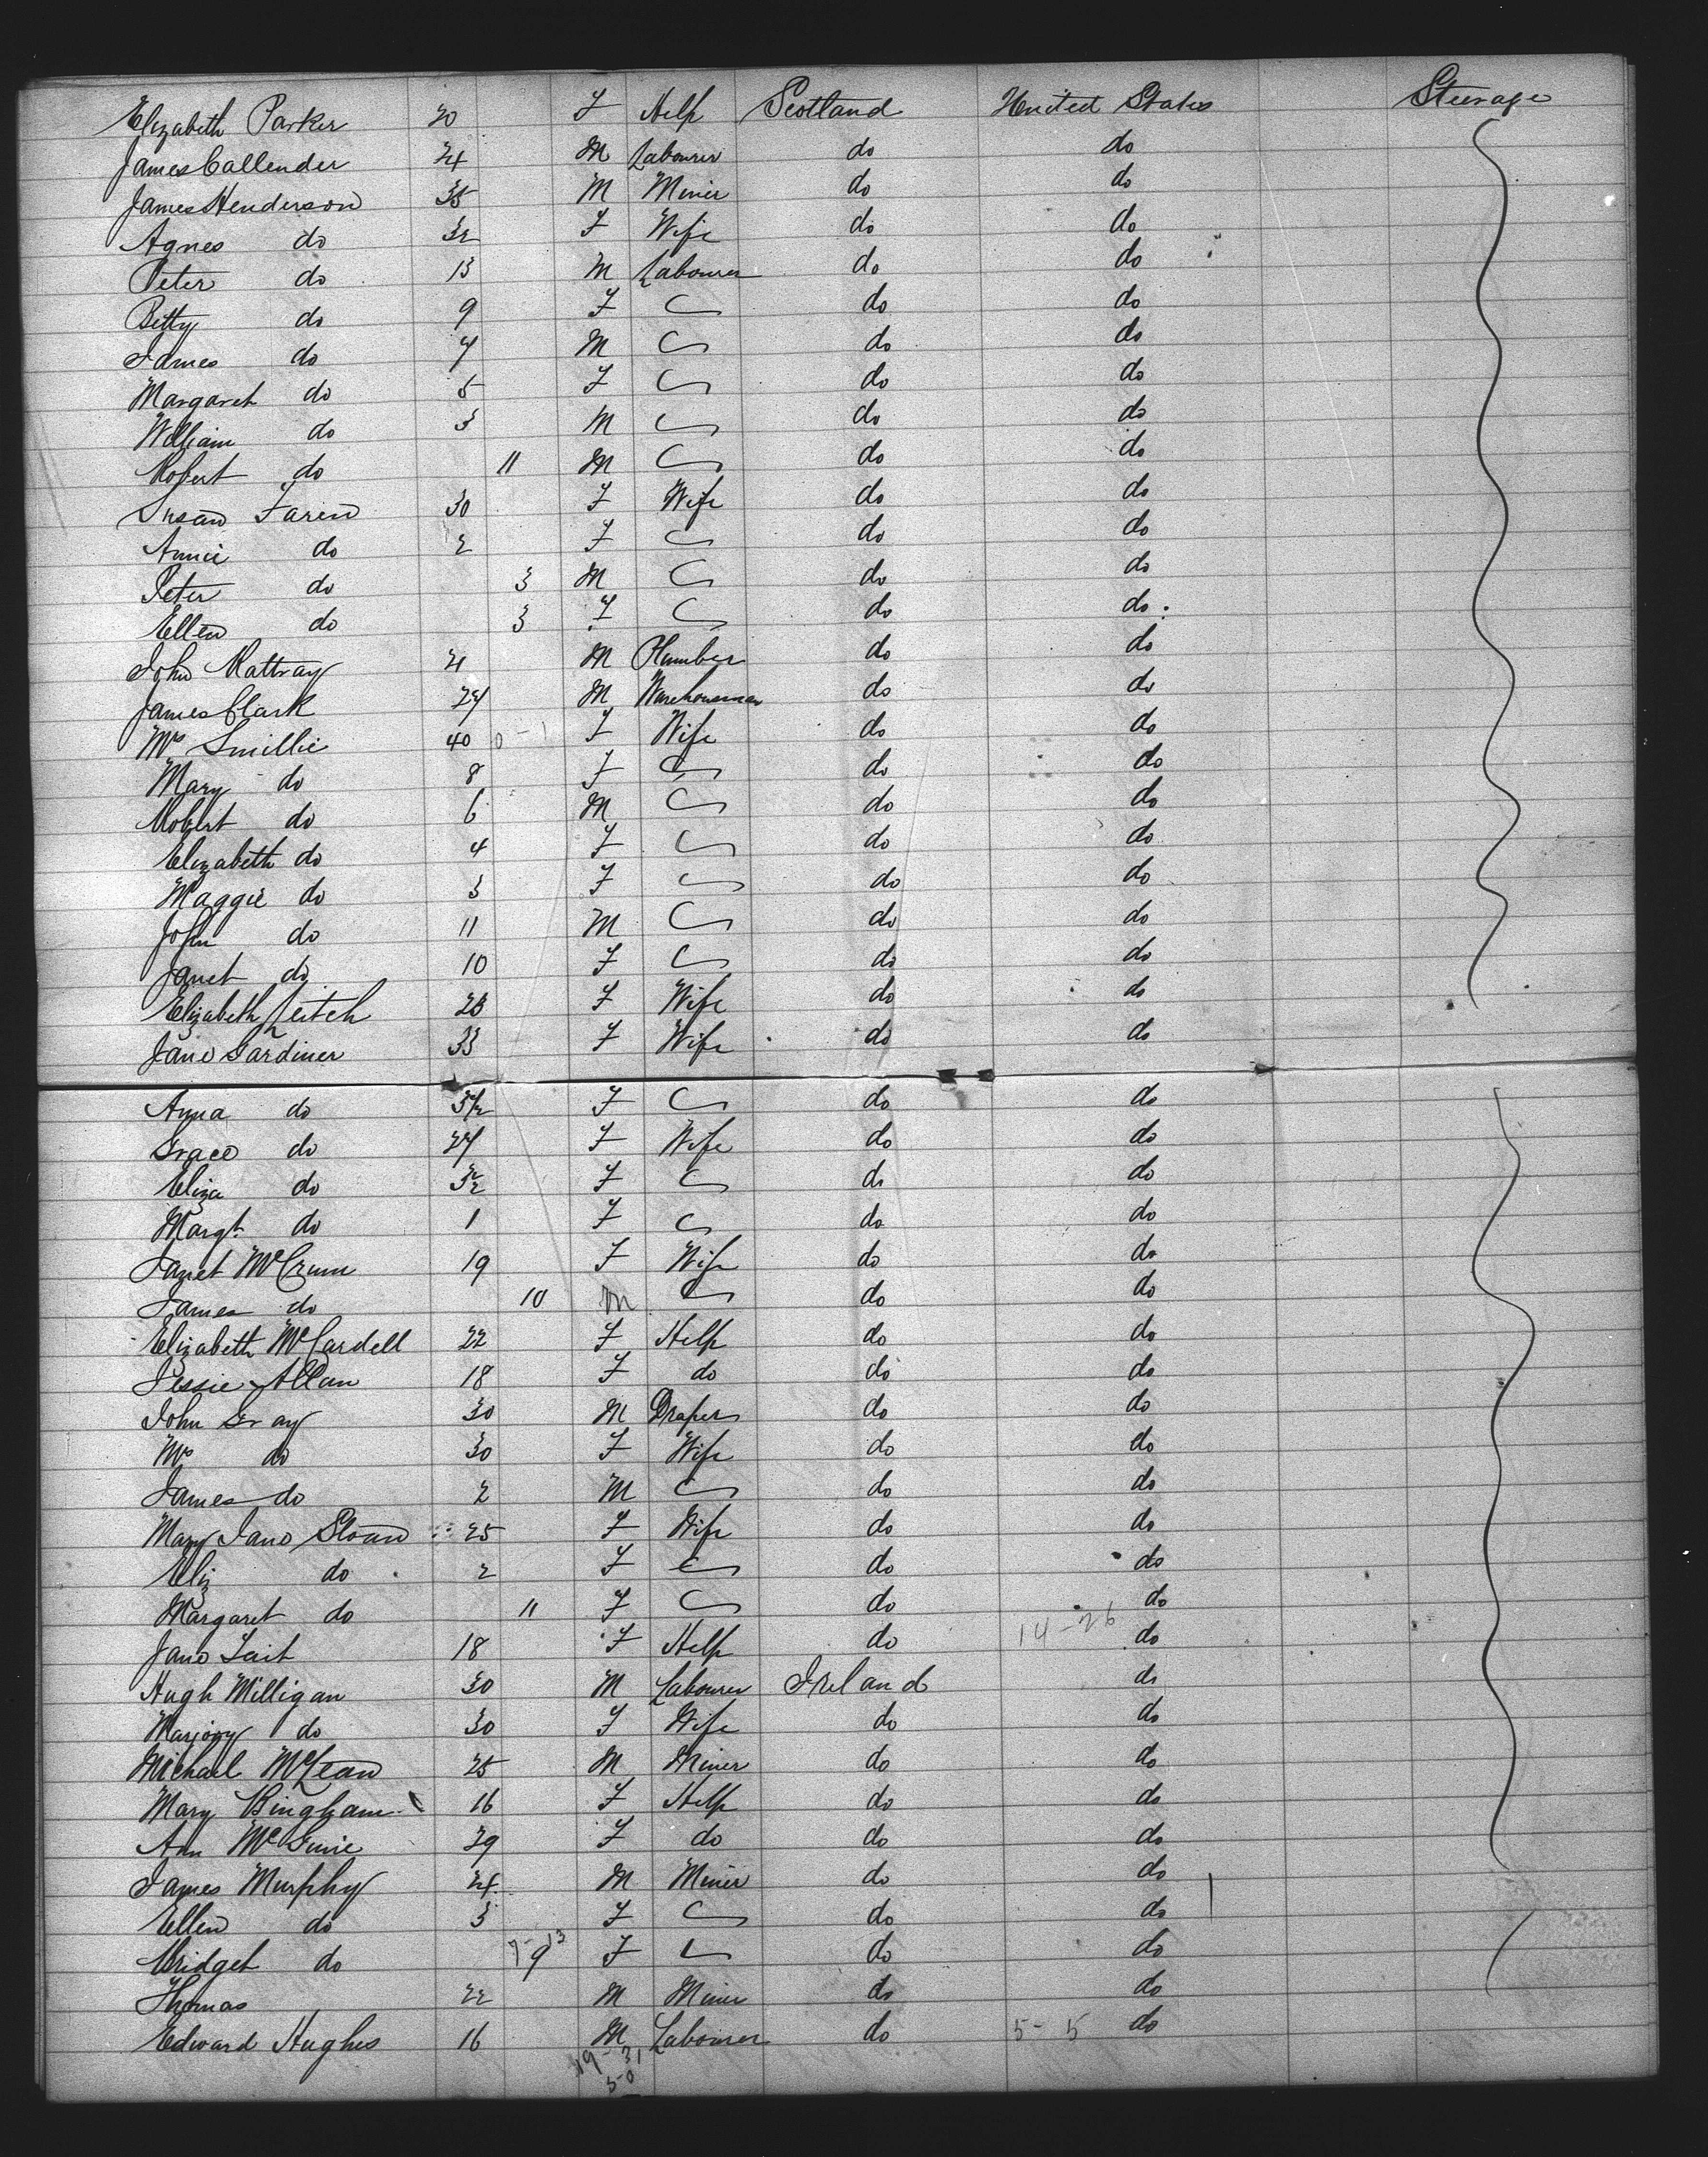 Elizabeth Parker 20 F Help Scotland United States Steerage
James Callender 24 M Labourer do do
James Henderson 35 M Miner do do
Agnes do 32 F Wife do do
Peter do 13 M Labourer do do
Betty do 9 F do do
James do 7 M do do
Margaret do 5 F do do
William do 3 M do do
Robert do 11 M do do
Susan Faren 30 F Wife do do
Annie do 2 F do do
Peter do 3 M do do
Ellen do 3 F do do
John Rattray 21 M Plumber do do
James Clark 27 M Warehouseman do do
Mrs Smillie 40 0-1 F Wife do do
Mary do 8 F do do
Robert do 6 M do do
Elizabeth do 4 F do do
Maggie do 3 F do do
John do 11 M do do
Janet do 10 F do do
Elizabeth Leitch 28 F Wife do do
Jane Gardiner 33 F Wife do do
Anna do F do do
Grace do 27 F Wife do do
Eliza do F do do
Margt. do 1 F do do
Janet McCrum 19 F Wife do do
James do 10 M do do
Elizabeth McCardell 22 F Help do do
Jessie Allan 18 F do do do
John Gray 30 M Draper do do
Mrs do 30 F Wife do do
James do 2 M do do
Mary Jane Sloan 25 F Wife do do
Eliz do 2 F do do
Margaret do 11 F do do
Jane Tait 18 F Help do 14-26 do
Hugh Milligan 30 M Labourer Ireland do
Marjory do 30 F Wife do do
Michael McLean 25 M Miner do do
Mary Bingham 16 F Help do do
Ann McGuire 29 F do do do
James Murphy 24 M Miner do do
Ellen do 3 F do do
Bridget do 7-13 9 F do do
Thomas 22 M Miner do do
Edward Hughes 16 M Labourer do 5-5 do
19-31
50